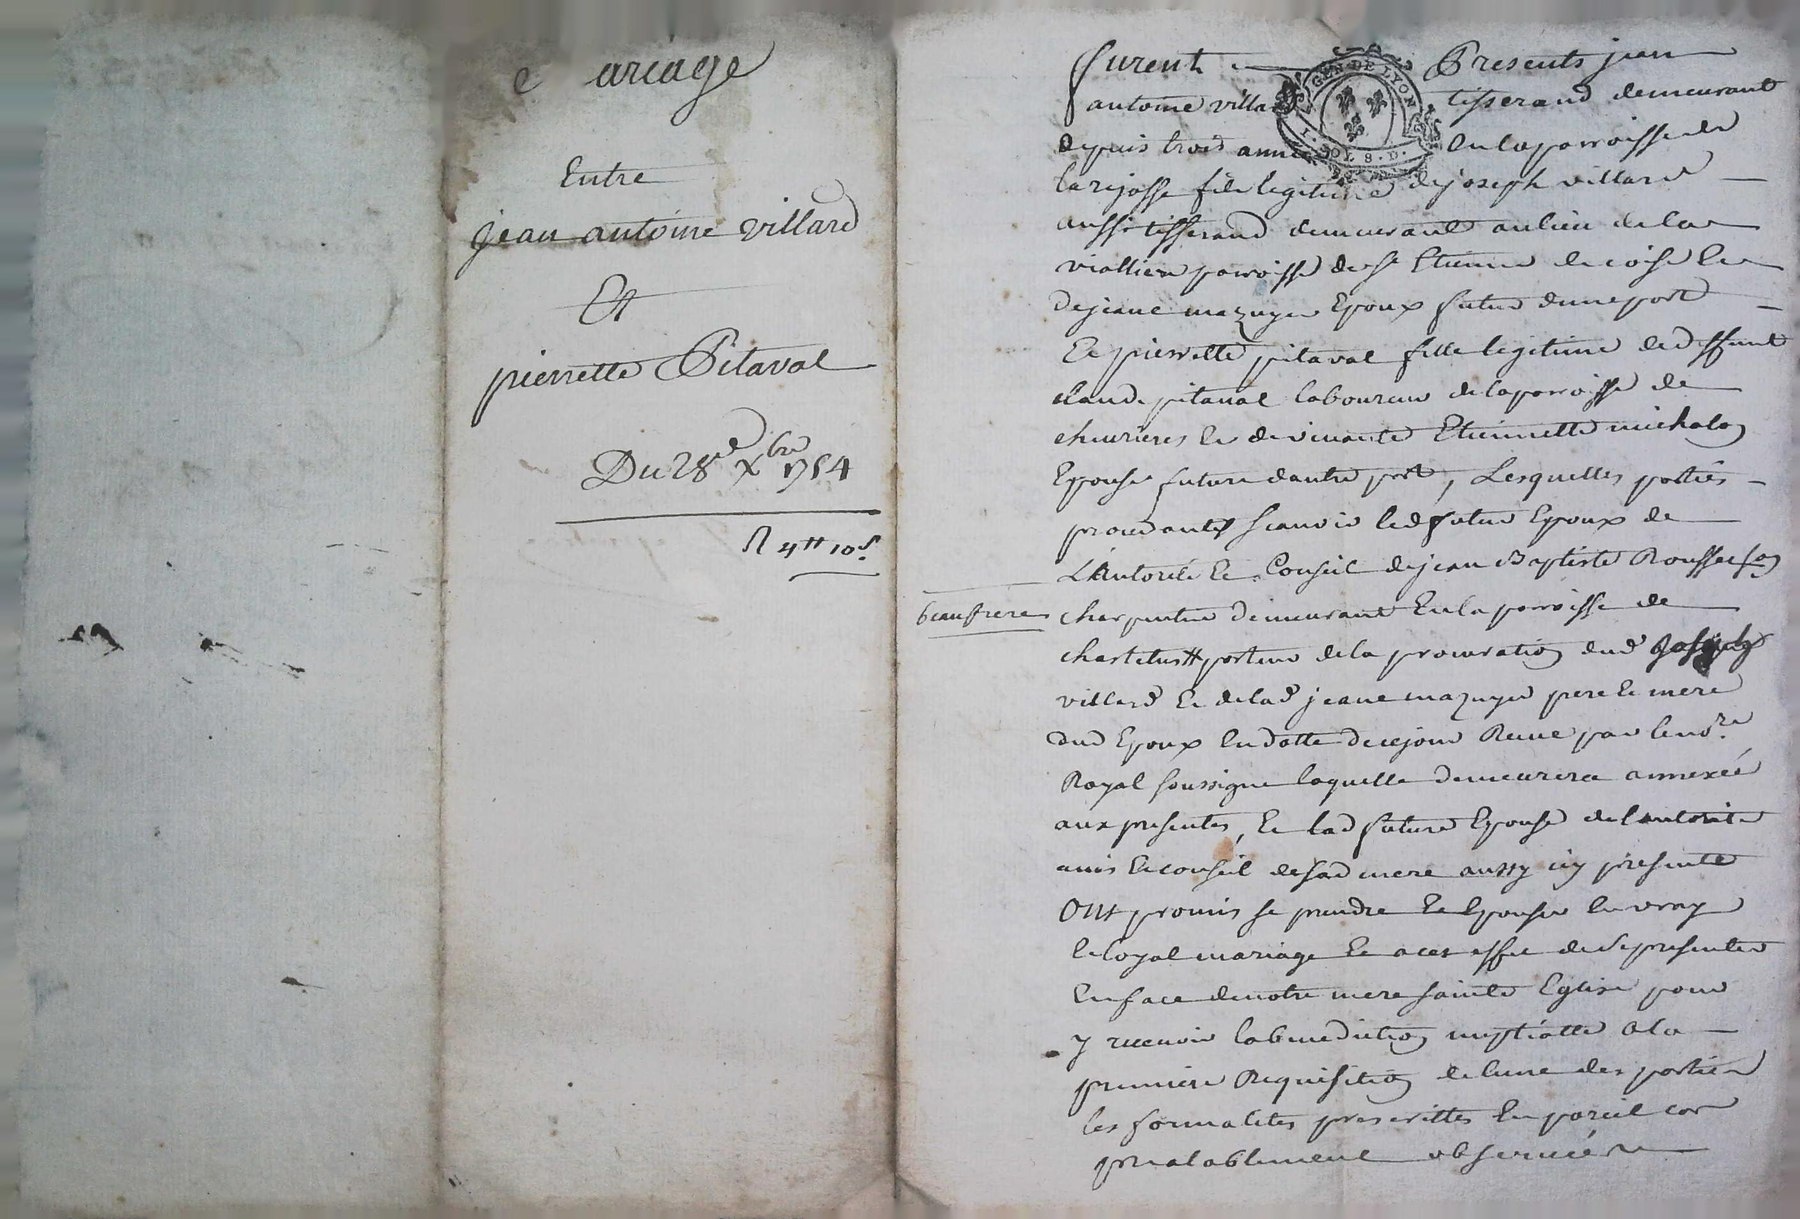 ariage
Entre
jean antoine villard
Et
pierrette Pitaval
Du 28e xbre 1754
R 4tt 10s
furent Presents jean
GEN. DE LYON
I. SOL 8. D.
antoine villard tisserand demeurant
depuis trois années en la parroisse de
larajasse fils legitime de joseph villard
aussi tisserand demeurant au lieu de la
vialliere parroisse de st Etienne de coise Et
de jeane mazuyer Epoux futur dune part
Et pierrette pitaval fille legitime de deffunt
claude pitaval laboureur de la parroisse de
chevrieres Et de vivante Etiennette michalon
Epouse future dautre part, Lesquelles parties
procedantes scavoir led futur Epoux de
L'Autorité Et Conseil de jean Baptiste Rousset son
beaufrere
charpentier demeurant En la parroisse de
chastelus tt porteur de la procuration dud joseph
villard Et de lad jeane mazuyer pere Et mere
dud Epoux En datte de ce jour Recue par le nore
Royal soussigne laquelle demeurera annexée
aux presentes, Et lad future Epouse de l'autorité
avis Et conseil de sad mere aussy icy presente
Ont promis se prendre Et Epouser En vray
Et loyal mariage Et a cet effet de se presenter
En face de notre mere sainte Eglise pour
y recevoir la benediction nuptialle a la
premiere Requisition de lune des parties
les formalites prescrittes En pareil cas
prealablement observées